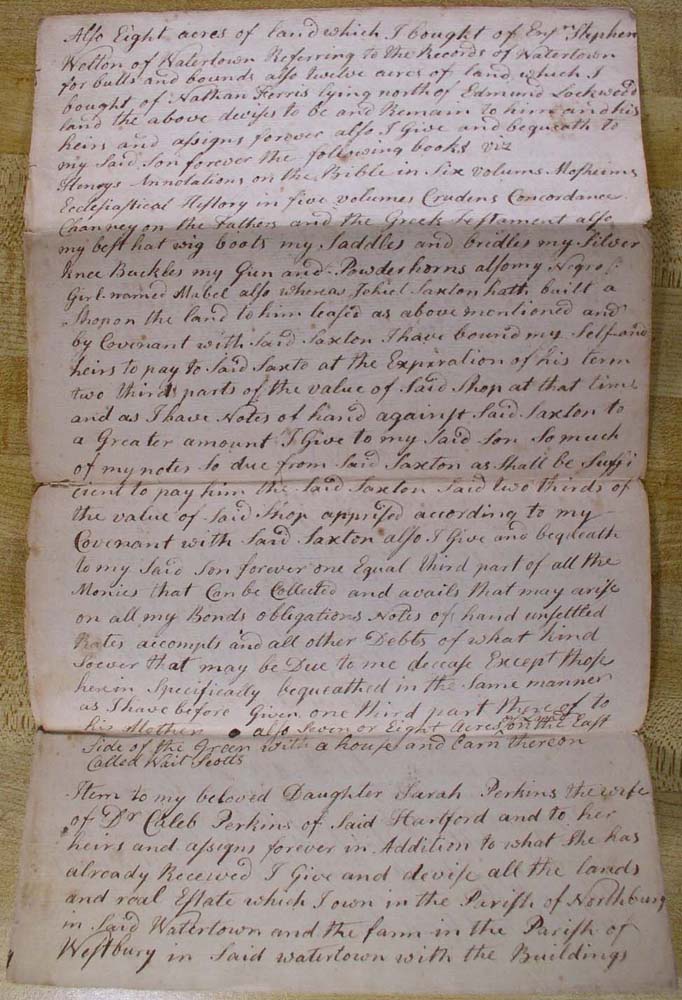 Also Eight acres of land which I bought of Ensn Stephen
Welton of Watertown Referring to the Records of Watertown
for butts and bounds also twelve acres of land which I
bought of Nathan Ferris lying north of Edmund Lockwood
land the above devises to be and Remain to him and his
heirs and assigns forever also I Give and bequeath to
my Said Son forever the following books viz
Henrys Annotations on the Bible in Six volums Mosheims
Ecclesiastical History in five volumes Crudens Concordance
on the Fathers and the Greek Testament also
my best hat wig boots my Saddles and bridles my Silver
knee Buckles my Gun and Powderhorns also my Negro
Girl named Mabel also whereas Jehiel Saxton hath built a
Shop on the land to him leased as above mentioned and
by Covenant with Said Saxton I have bound my Self and
heirs to pay to Said Saxto at the Expiration of his term
two third parts of the value of Said Shop at that time
and as I have Notes of hand against Said Saxton to
a Greater amount I Give to my Said Son So much
of my notes So due from Said Saxton as Shall be Suffi
cient to pay him the Said Saxton Said two thirds of
the value of Said Shop apprised according to my
Covenant with Said Saxton also I Give and beqdeath
to my Said Son forever one Equal third part of all the
Monies that Can be Collected and avails that may arise
on all my Bonds obligations Notes of hand unsettled
Rates accompts and all other Debts of what kind
Soever that may be Due to me decease Except those
herein Specifically bequeathed in the Same manner
as I have before Given one third part there of to
his Mother also Seven or Eight Acres on the East
Side of the Green with a house and barn thereon
Called Wait Scotts
Item to my beloved Daughter Sarah Perkins the wife
of Dr Caleb Perkins of Said Hartford and to her
heirs and assigns forever in Addition to what She has
already Received I Give and devise all the lands
and real Estate which I own in the Parish of Northbury
in Said Watertown and the farm in the Parish of
Westbury in Said watertown with the Buildings